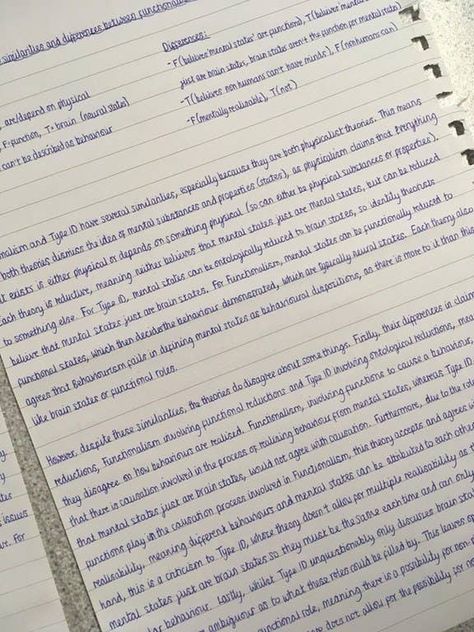 similarities and differences between functional
Differences:
-F (believes mental states are functions), T (believes mental
just are brain states, brain states aren't the function for mental states)
-T (believes non humans can't have minds), F (nonhumans can)
-F (mentally realisable), T (not)
are/depend on physical
F=function, T=brain (neural states)
can't be described as behaviour
nalism and Type ID have several similarities, especially because they are both physicalist theories. This means
both theories dismiss the idea of mental substances and properties (states), as physicalism claims that everything
t exists is either physical or depends on something physical (so can either be physical substances or properties).
Each theory is reductive, meaning neither believes that mental states just are mental states, but can be reduced
to something else. For Type ID, mental states can be ontologically reduced to brain states, so identity theorists
believe that mental states just are brain states. For Functionalism, mental states can be functionally reduced to
functional states, which then decides the behaviour demonstrated, which are typically neural states. Each theory also
agrees that Behaviourism fails in defining mental states as behavioural dispositions, as there is more to it than this
like brain states or functional roles.
However, despite these similarities, the theories do disagree about some things. Firstly, their differences in
reductions, Functionalism involving functional reductions and Type ID involving ontological reductions, mea
they disagree on how behaviours are realised. Functionalism, involving functions to cause a behaviour,
that there is causation involved in the process of realising behaviour from mental states, whereas Type ID
that mental states just are brain states, would not agree with causation. Furthermore, due to the
functions play in the causation process involved in Functionalism, this theory accepts and agrees
realisability, meaning different behaviours and mental states can be attributed to each othe
hand, this is a criticism to Type ID, where theory doesn't allow for multiple realisability as
mental states just are brain states so they must be the same each time and can onl
lar behaviour. Lastly, whilst Type ID unquestionably only discusses brain st
ambiguous as to what these roles could be filled by. This leaves
functional role, meaning there is a possibility for non
does not allow for the possibility for no
issues
For